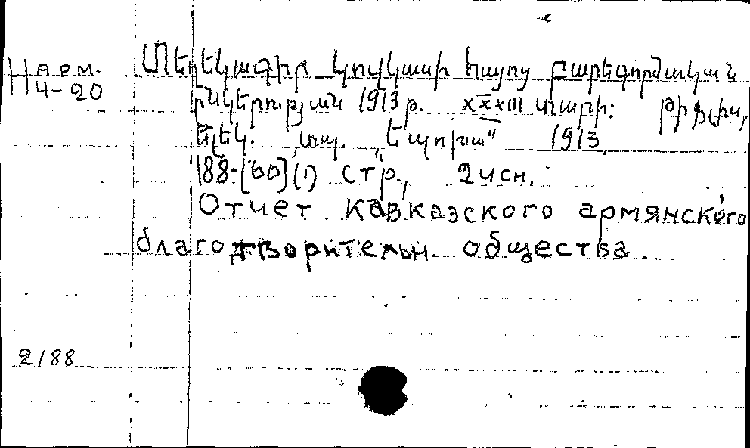 Н арм.
4-20
Տեղեկագիր Կովկասի հայոց բարեգործական
ընկերության 1913 թ. XXXIII տարի: Թիֆլիս,
Էլեկ. տպ. „Էպոխա" 1913
188-[60](1) стр., 2 исн.
Отчет кавказского армянского
благотворительн. общества.
2188